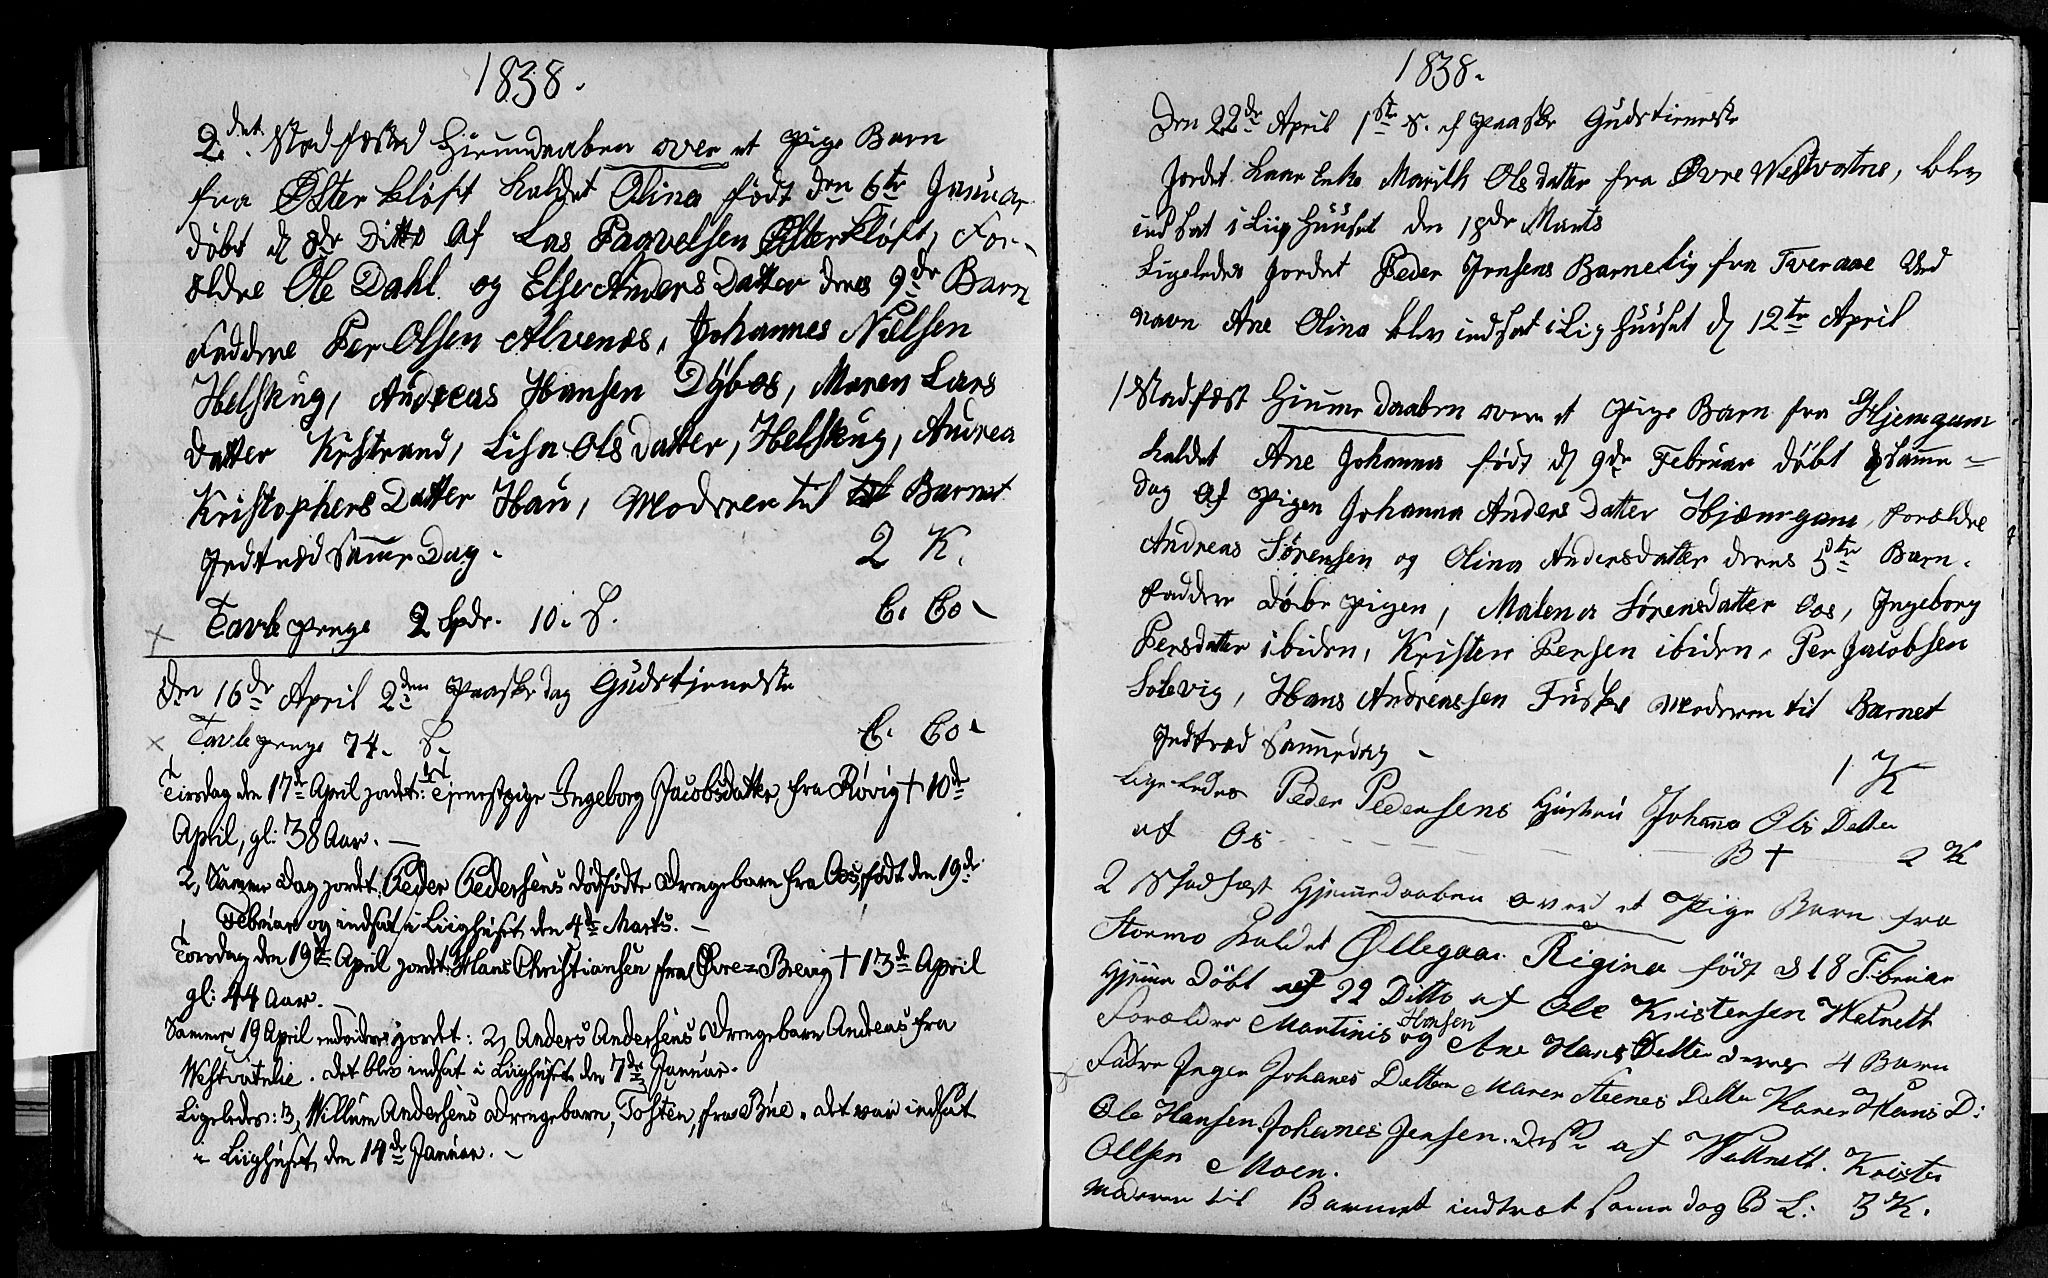 1838.
2det. Stadfæsted Hiemdaaben over et Pige Barn
fra Østerkløft kaldet Olina født den 6te Januar
døbt d 8de Ditto af Las Pagvelsen Østerkløft, For-
ældre Ole Dahl og Else Anders Datter deres 9de Barn
Faddre Per Olsen Alvenes, Johannes Nielsen
Helskug, Andreas Hansen Dybos, Maren Lars
datter Kistrand, Lisa Ols Datter, Helskug, Andrea
Kristophers Datter Hau, Moderen til Barnet
Indtræd Samme Dag.
2 K.
Tavle Penge 2 Spdr. 10. S.
C. Co
Den 16de April 2den Paaske dag Gudstjeneste
Tavle penge 74. S.
C. Co
Tirsdag den 17de April jordet: Tjenestpige Ingeborg Jacobsdatter fra Røvig † 10de
April, gl: 38 Aar. —
2, Samme Dag jordet Peder Pedersens dødfødte Drengebarn fra Oos, født den 19de
Februar og indsat i Liighuset den 4de Marts. —
Torsdag den 19de April jordet: Hans Christiansen fra Øvre=Brevig † 13de April
gl: 44 Aar. —
Samme 19 April endvidere jordet: 2, Anders Andersens Drengebarn Andreas fra
Westvatnlie. det blev indsat i Liighuset den 7de Januar.
Ligeledes: 3, Willum Andersens Drengebarn, Tosten, fra Bue. det var indsat
i Liighuset den 14de Januar. —
1838.
Den 22de April 1ste S. ef Paaske Gudstieneste
Jordet Enke Marith Olsdatter fra Øvre Westvatne, blev
indsat i Liig Huuset den 18de Marts
Ligeledes Jordet Peder Jensens Barnelig fra Tveraae Ved
navn Ane Olina blev indsat i Lig Huuset d 12te April
1 Stadfæst Hiemme daaben over et Pige Barn fra Hjemgam
kaldet Ane Johanna født d 9de Februar døbt Samme
dag af Pigen Johanna Anders Datter Hjæmgam, Forældre
Andreas Sørensen og Olina Andersdatter deres 5te Barn.
Faddere Døbe Pigen, Malena Sørensdatter Oos, Ingeborg
Persdatter ibiden, Kristen Persen ibiden, Per Jacobsen
Solevig, Hans Andreassen Fuske Moderen til Barnet
Indtræd Sammedag —
1 K
Ligeledes Peder Pedersens Hustrue Johana Ols Datter
af Os B † 2 K
2 Stadfæst Hjemmedaaben over et Pige Barn fra
Stormo kaldet Øllegaar Rigina født d 18 Februar
Hjemme Døbt 22 Ditto af Ole Kristensen Watnett
Forældre Martinis Hansen og Ane Hans Datter deres 4 Barn
Fadre Inger Johanes Datter Maren Steenes Datter Karen Hans D:
Ole Hansen. Johanes Jensen. af Wattnett. Kristen
Ollsen Moen.
Moderen til Barnet indtræt same dag B L: 3 K.